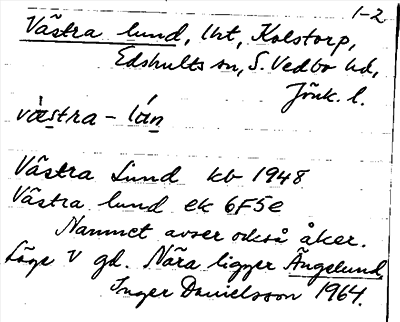 1-2
Västra lund, lht, Kolstorp,
Edshults sn, S. Vedbo hd,
Jönk. l.
västra - lún
Västra Lund kb 1948
Västra lund ek 6F5e
Namnet avser också åker.
Läge V gd. Nära ligger Ängelund.
Inger Danielsson 1964.